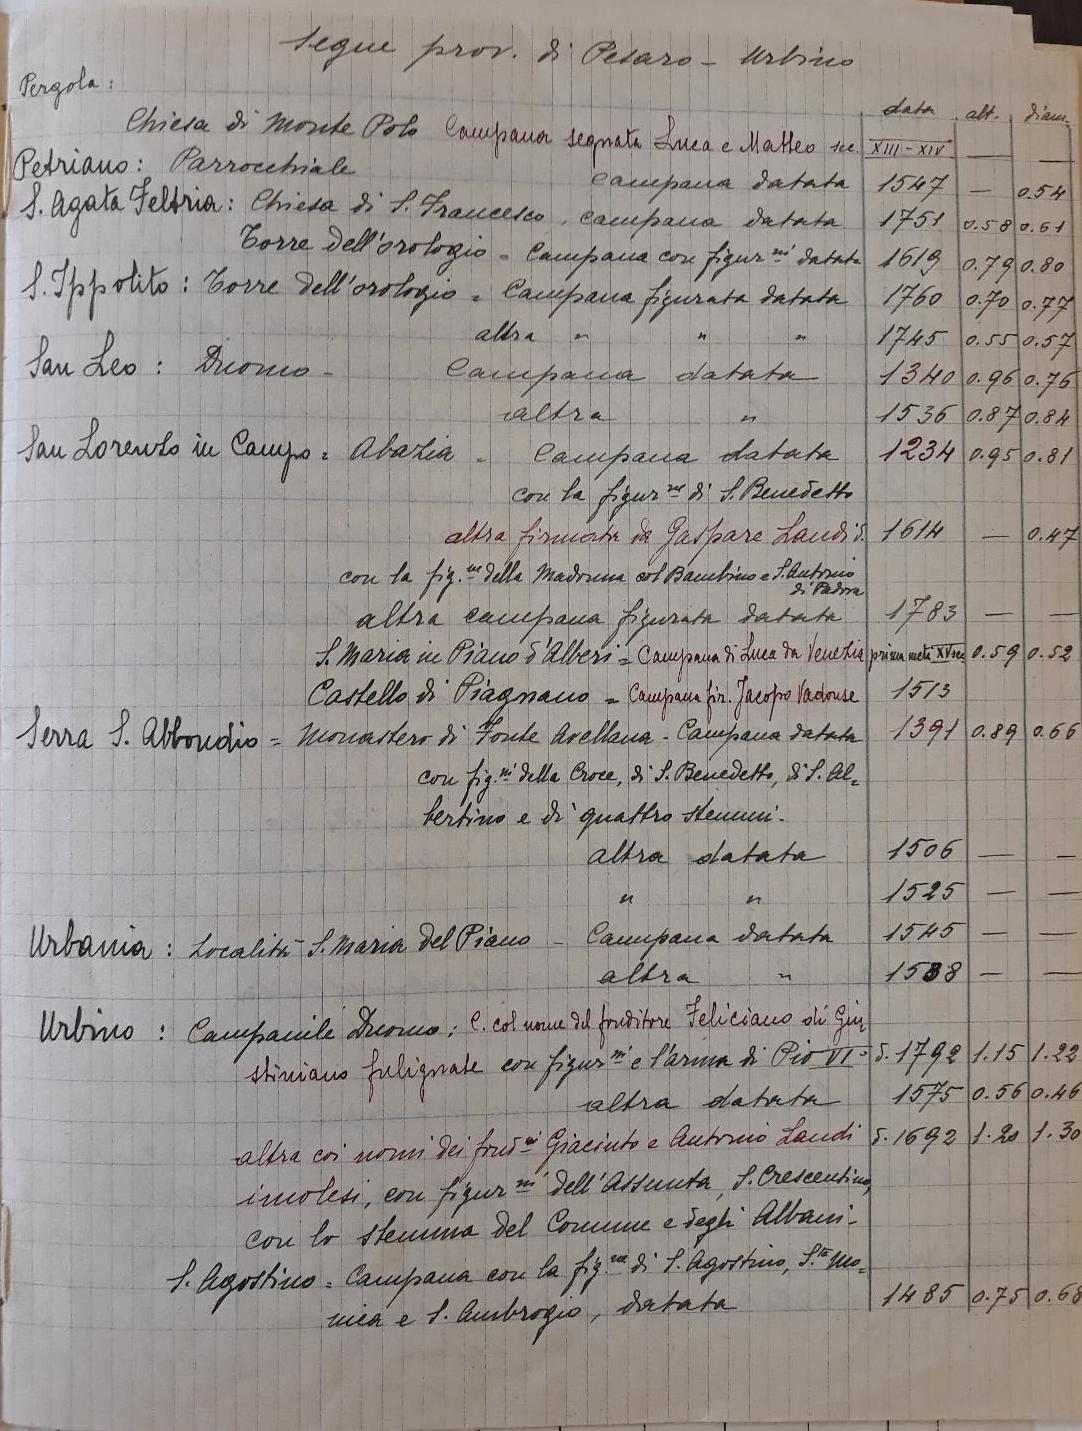 Segue prov. di Pesaro - Urbino
Pergola:
data alt. diam.
Chiesa di Monte Polo Campana segnata Luca e Matteo sec. XIII-XIV — —
Petriano: Parrocchiale Campana datata 1547 — 0.54
S. Agata Feltria: Chiesa di S. Francesco. Campana datata 1751 0.58 0.61
Torre dell'orologio = Campana con figur.ni datata 1619 0.79 0.80
S. Ippolito: Torre dell'orologio = Campana figurata datata 1760 0.70 0.77
altra " " " 1745 0.55 0.57
San Leo: Duomo - Campana datata 1340 0.96 0.76
altra " 1536 0.87 0.84
San Lorenzo in Campo = Abazia = Campana datata 1234 0.95 0.81
con la figur.ne di S. Benedetto
altra firmata da Gaspare Landi d. 1614 — 0.47
con la fig.ne della Madonna col Bambino e S. Antonio
di Padova
altra campana figurata datata 1783 — —
S. Maria in Piano d'Alberi = Campana di Luca da Venezia prima metà XV sec. 0.59 0.52
Castello di Piagnano = Campana fir. Jacopo Vadouse 1513
Serra S. Abbondio = Monastero di Fonte Avellana - Campana datata 1391 0.89 0.66
con fig.ni della Croce, di S. Benedetto, di S. Al=
bertino e di quattro stemmi.
altra datata 1506 — —
" " 1525 — —
Urbania: Località S. Maria del Piano - Campana datata 1545 — —
altra " 1538 — —
Urbino: Campanile Duomo: C. col nome del fonditore Feliciano di Giu
stiniano fulignate con figur.ni e l'arma di Pio VI° d. 1792 1.15 1.22
altra datata 1575 0.56 0.46
altra coi nomi dei fond.ri Giacinto e Antonio Landi d. 1692 1.20 1.30
imolesi, con figur.ni dell'Assunta, S. Crescentino,
con lo stemma del Comune e degli Albani.
S. Agostino = Campana con la fig.ne di S. Agostino, S.ta Mo=
nica e S. Ambrogio, datata 1485 0.75 0.68